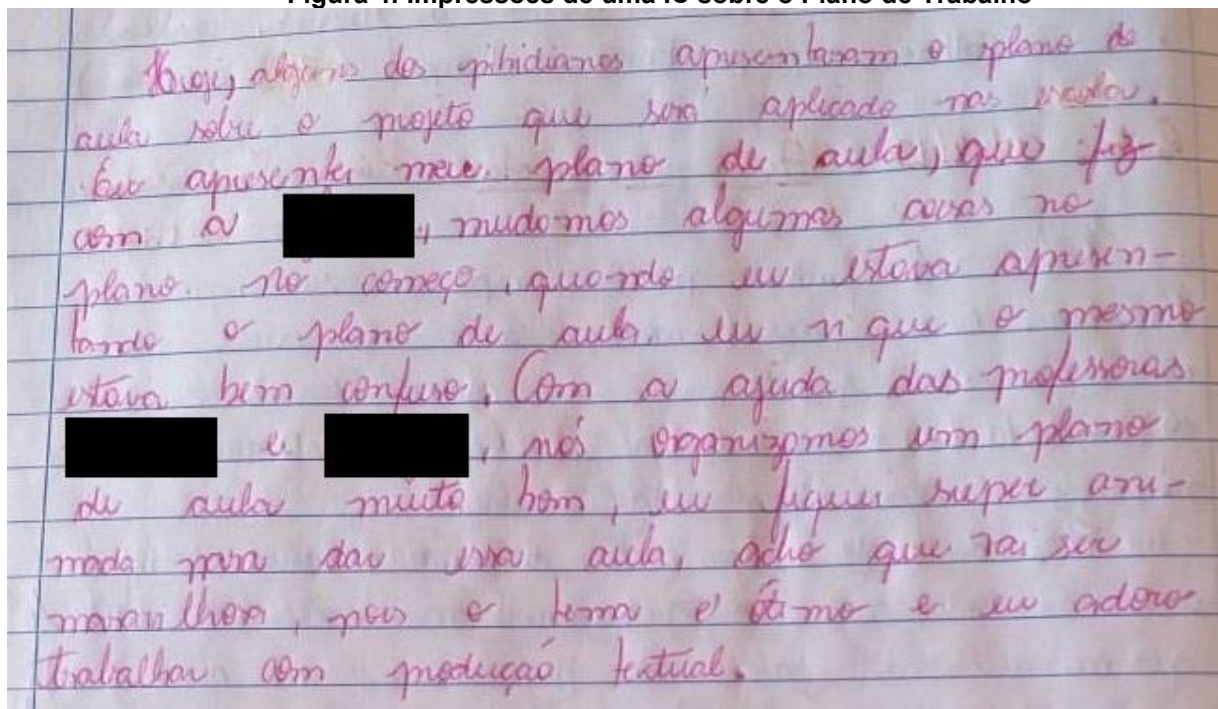 Figura 4: Impressões de uma IC sobre o Plano de Trabalho
Hoje, alguns dos pibidianos apresentaram o plano de
aula sobre o projeto que será aplicado nas escolas.
Eu apresentei meu plano de aula, que fiz
com a , mudamos algumas coisas no
plano. No começo, quando eu estava apresen-
tando o plano de aula, eu vi que o mesmo
estava bem confuso. Com a ajuda das professoras
e , nós organizamos um plano
de aula muito bom, eu fiquei super ani-
mada para dar essa aula, acho que vai ser
maravilhosa, pois o tema é ótimo e eu adoro
trabalhar com produção textual.